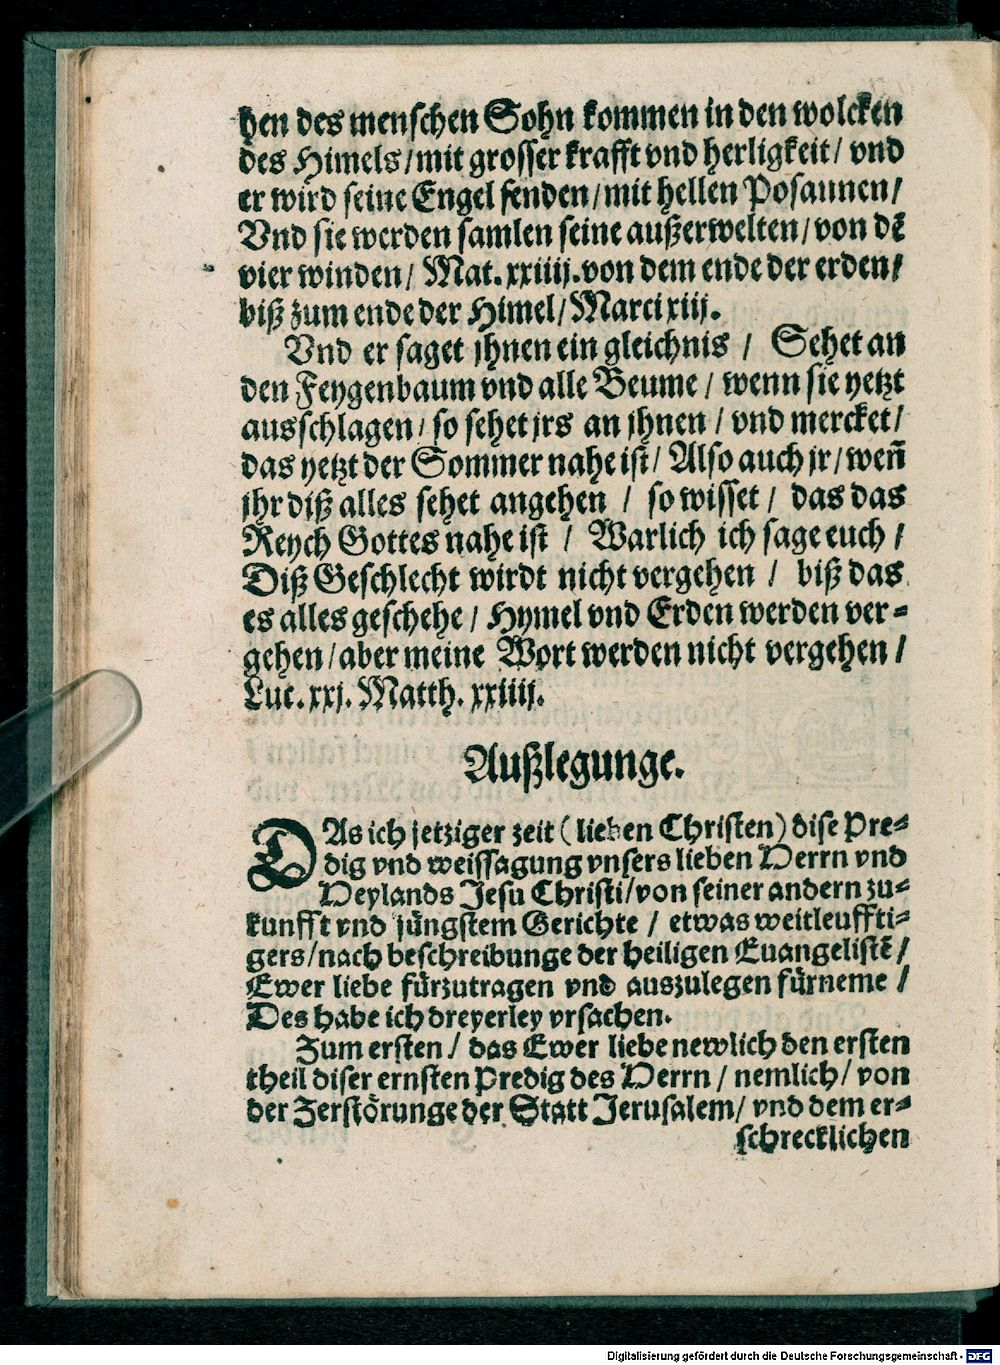 hen des menschen Sohn kommen in den wolcken
des Himels/mit grosser krafft vnd herligkeit/ vnd
er wird seine Engel senden/mit hellen Posaunen/
Vnd sie werden samlen seine außerwelten/von dē
vier winden/ Mat. xxiiij.von dem ende der erden/
biß zum ende der Himel/Marci xiij.
Vnd er saget jhnen ein gleichnis / Sehet an
den Feygenbaum vnd alle Beume / wenn sie yetzt
ausschlagen/ so sehet jrs an jhnen / vnd mercket/
das yetzt der Sommer nahe ist/ Also auch jr/wen̄
jhr diß alles sehet angehen / so wisset / das das
Reych Gottes nahe ist / Warlich ich sage euch /
Diß Geschlecht wirdt nicht vergehen / biß das
es alles geschehe / Hymel vnd Erden werden ver-
gehen/aber meine Wort werden nicht vergehen /
Luc. xxj. Matth. xxiiij.
Außlegunge.
DAs ich jetziger zeit (lieben Christen) dise Pre-
dig vnd weissagung vnsers lieben Herrn vnd
Heylands Jesu Christi/von seiner andern zu-
kunfft vnd jüngstem Gerichte / etwas weitleuffti-
gers/nach beschreibunge der heiligen Euangelistē/
Ewer liebe fürzutragen vnd auszulegen fürneme /
Des habe ich dreyerley vrsachen.
Zum ersten / das Ewer liebe newlich den ersten
theil diser ernsten Predig des Herrn / nemlich/ von
der Zerstörunge der Statt Jerusalem/ vnd dem er-
schrecklichen
Digitalisierung gefördert durch die Deutsche Forschungsgemeinschaft - DFG